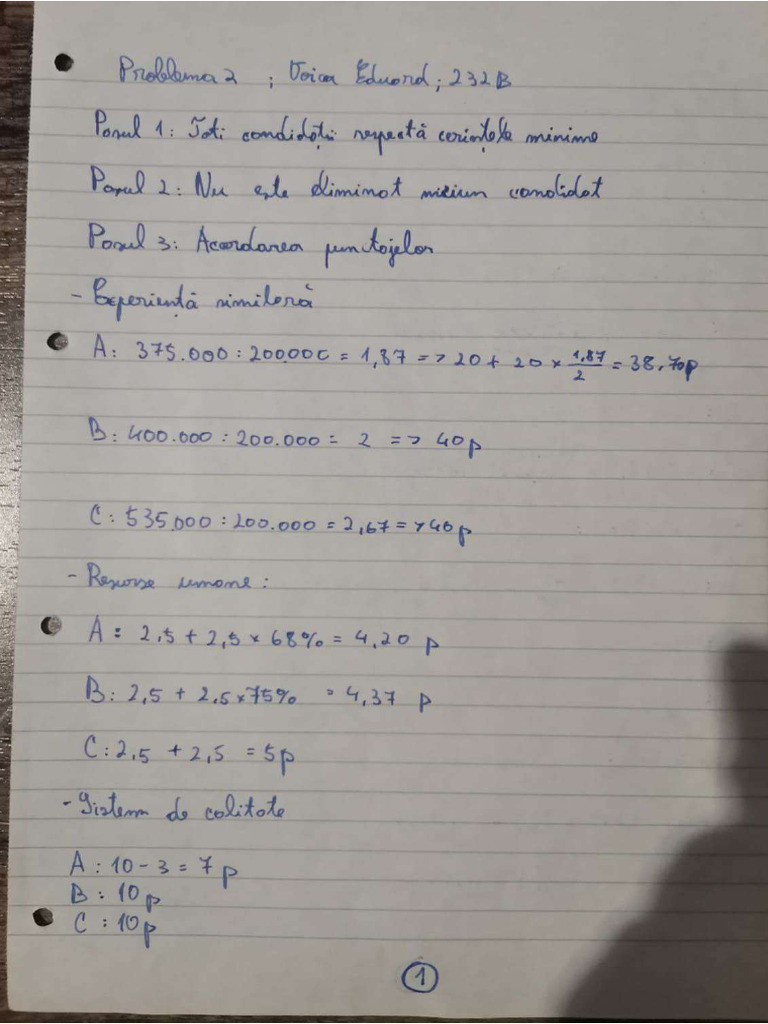 Problema 2 ; Voicu Eduard ; 232 B
Pasul 1: Toti candidații respectă cerințele minime
Pasul 2: Nu este eliminat niciun candidat
Pasul 3: Acordarea punctajelor
- Experiență similară
A: 375.000 : 200.000 = 1,87 => 20 + 20 × 1,87/2 = 38,70p
B: 400.000 : 200.000 = 2 => 40p
C: 535.000 : 200.000 = 2,67 => 40p
- Resurse umane :
A = 2,5 + 2,5 × 68% = 4,20 p
B: 2,5 + 2,5 × 75% = 4,37 p
C: 2,5 + 2,5 = 5p
- Sistem de calitate
A : 10 - 3 = 7 p
B : 10p
C : 10p
1